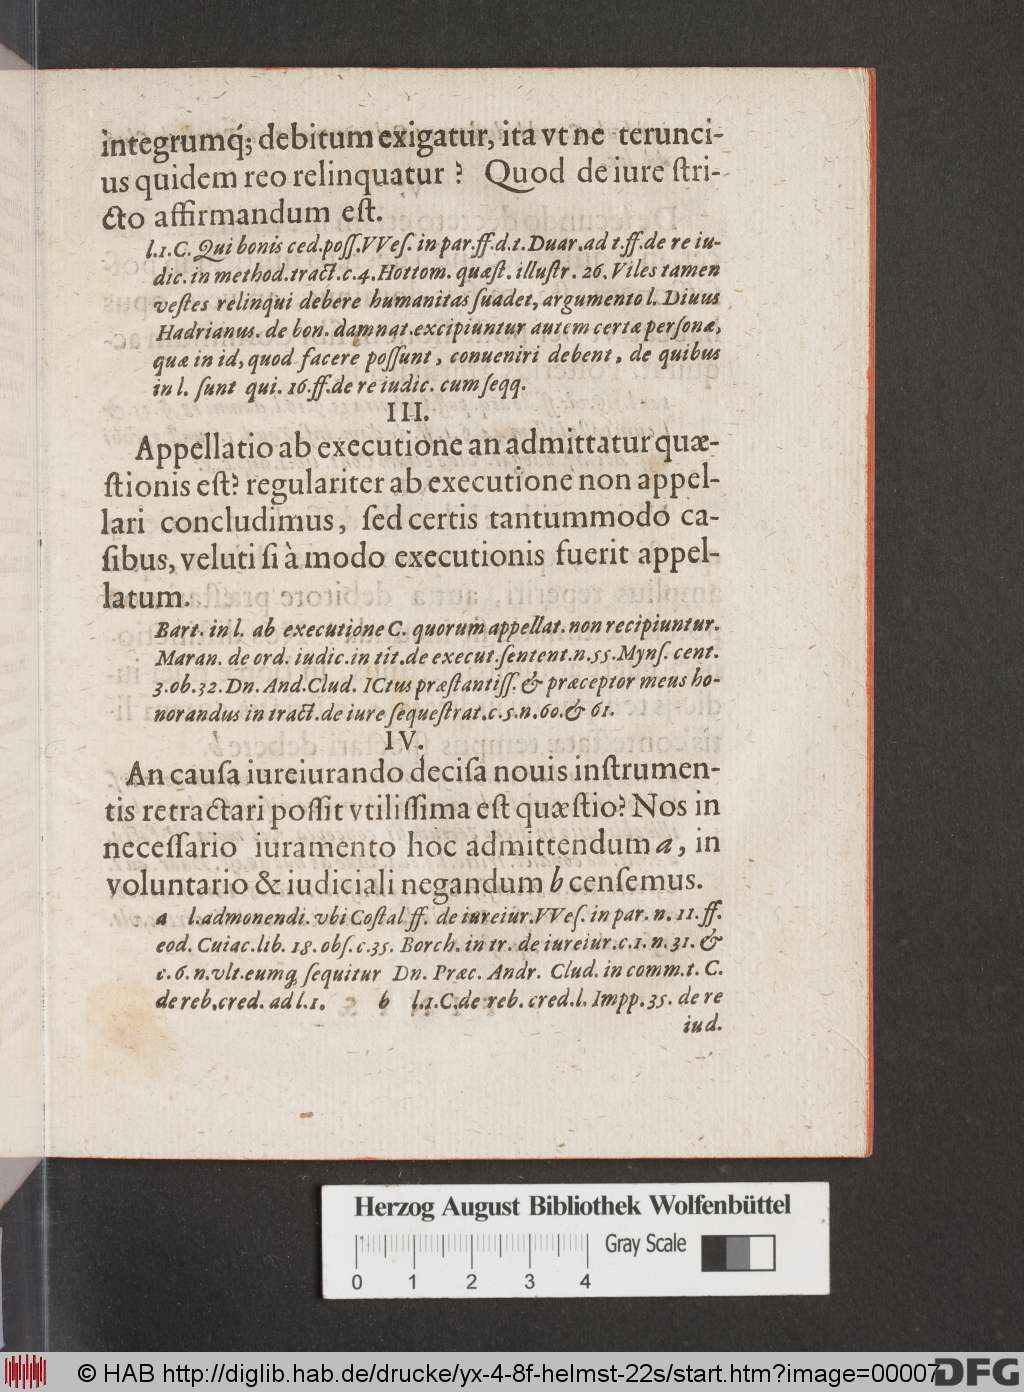 integrumq́; debitum exigatur, ita vt ne terunci-
us quidem reo relinquatur? Quod de iure ſtri-
cto affirmandum eſt.
l.1.C. Qui bonis ced.poſſ.VVeſ. in par.ff.d.t.Duar.ad t.ff.de re iu-
dic. in method.tract.c.4.Hottom. quæſt. illuſtr. 26. Viles tamen
veſtes relinqui debere humanitas ſuadet, argumento l. Diuus
Hadrianus. de bon. damnat.excipiuntur autem certæ perſonæ,
quæ in id, quod facere poſſunt, conueniri debent, de quibus
in l. ſunt qui. 16.ff.de re iudic. cum ſeqq.
III.
Appellatio ab executione an admittatur quæ-
ſtionis eſt? regulariter ab executione non appel-
lari concludimus, ſed certis tantummodo ca-
ſibus, veluti ſi à modo executionis fuerit appel-
latum.
Bart. in l. ab executione C. quorum appellat. non recipiuntur.
Maran. de ord. iudic. in tit.de execut.ſentent.n.55.Mynſ. cent.
3.ob.32.Dn. And.Clud. ICtus præſtantiſſ. & præceptor meus ho-
norandus in tract.de iure ſequeſtrat.c.5.n.60.& 61.
IV.
An cauſa iureiurando deciſa nouis inſtrumen-
tis retractari poſſit vtiliſſima eſt quæſtio? Nos in
neceſſario iuramento hoc admittendum a, in
voluntario & iudiciali negandum b cenſemus.
a l.admonendi. vbi Coſtal ff. de iureiur.VVeſ. in par. n. 11.ff.
eod. Cuiac.lib. 18. obſ.c.35. Borch. in tr. de iureiur.c.1. n.31. &
c.6.n.vlt.eumq́ ſequitur Dn. Præc. Andr. Clud. in comm.t. C.
de reb.cred. ad l.1. b l.1.C.de reb. cred.l. Impp.35. de re
iud.
Herzog August Bibliothek Wolfenbüttel
Gray Scale
0 1 2 3 4
© HAB http://diglib.hab.de/drucke/yx-4-8f-helmst-22s/start.htm?image=00007
DFG